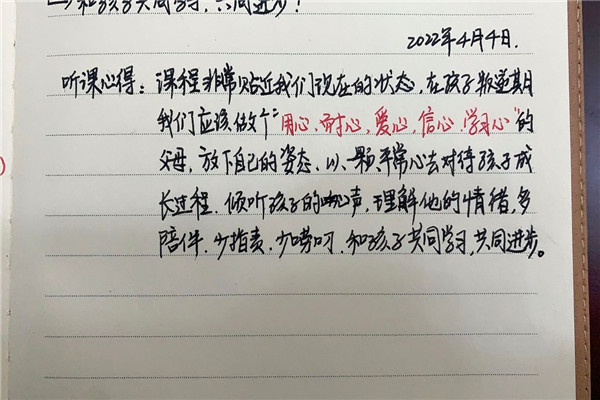 和孩子共同学习,共同进步!
2022年4月4日.
听课心得:课程非常贴近我们现在的状态,在孩子叛逆期
我们应该做个“用心、耐心,爱心,信心.学习心”的
父母,放下自己的姿态.以一颗平常心去对待孩子成
长过程.倾听孩子的心声,理解他的情绪,多
陪伴.少指责.少唠叨.和孩子共同学习,共同进步。